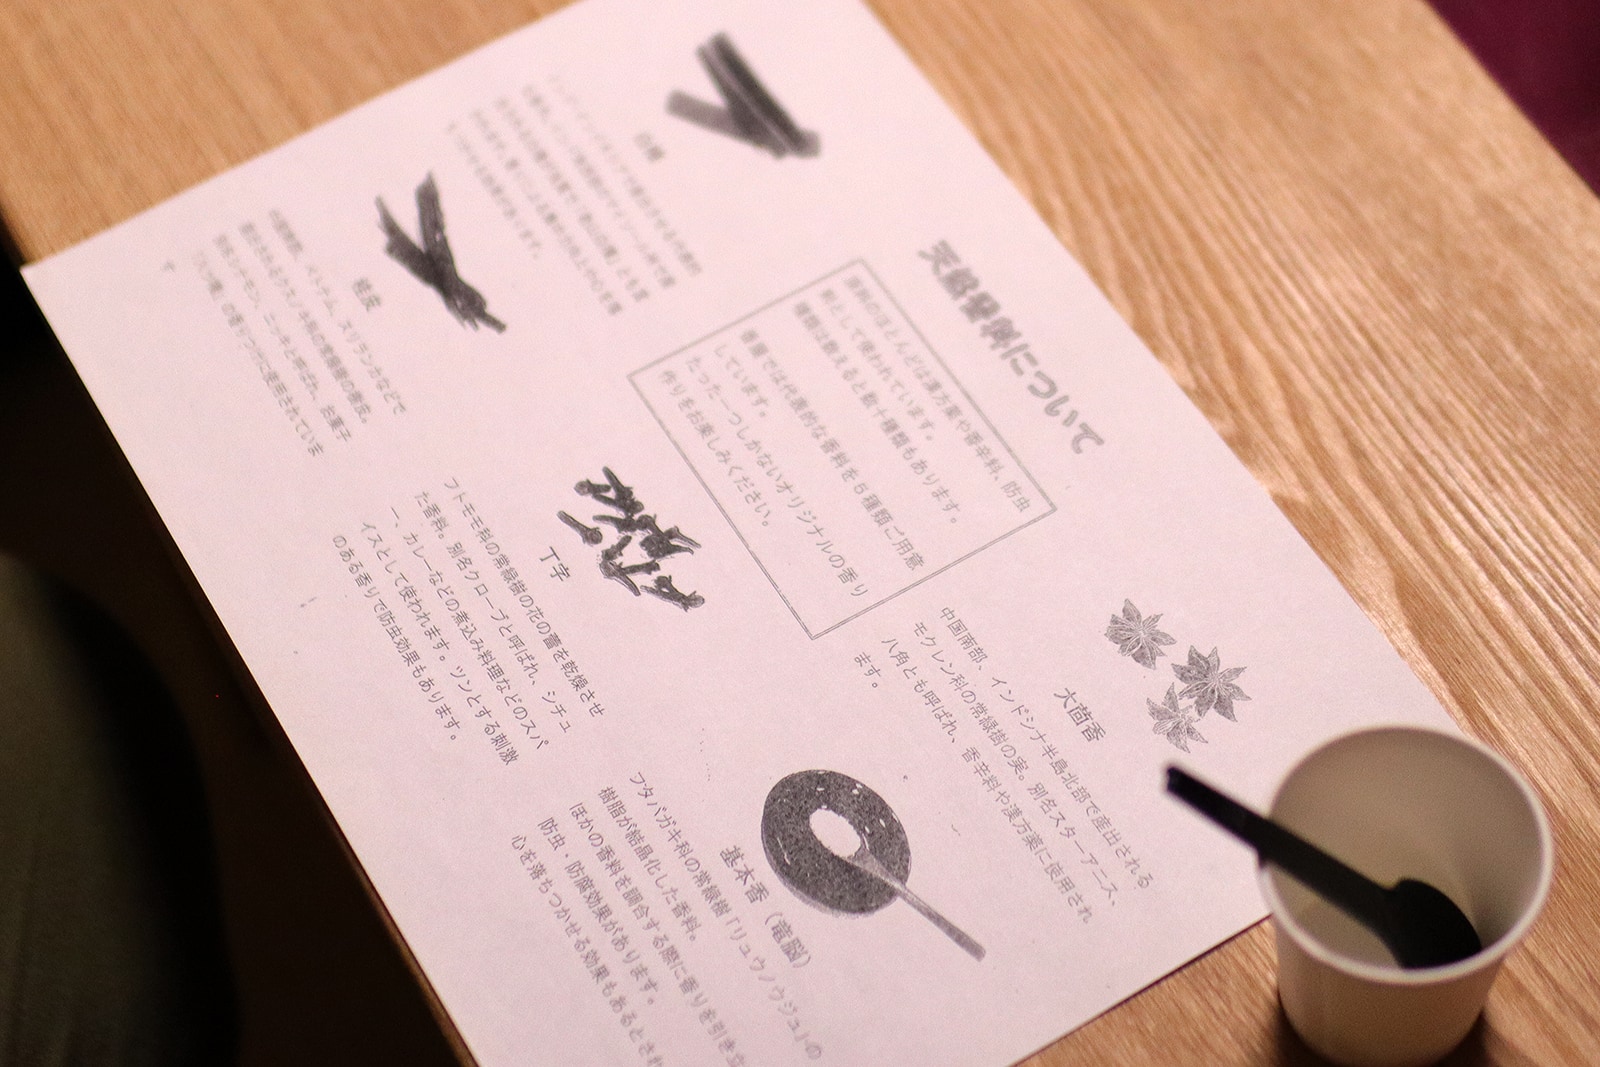 天然香料について
原料のほとんどは漢方薬や香辛料、防虫
剤として使われています。
種類は数えると数十種類もあります。
香房では代表的な香料を5種類ご用意
しています。
たった一つしかないオリジナルの香り
作りをお楽しみください。
大茴香
中国南部、インドシナ半島北部で産出される
モクレン科の常緑樹の実。別名スターアニス、
八角とも呼ばれ、香辛料や漢方薬に使用され
ます。
白檀
桂皮
中国南部、ベトナム、スリランカなどで
産出されるクスノキ科の常緑樹の樹皮。
別名シナモン、ニッキと呼ばれ、お菓子
「八ツ橋」の香りづけに使用されていま
す
丁字
フトモモ科の常緑樹の花の蕾を乾燥させ
た香料。別名クローブと呼ばれ、シチュ
ー、カレーなどの煮込み料理などのスパ
イスとして使われます。ツンとする刺激
のある香りで防虫効果もあります。
基本香（竜脳）
フタバガキ科の常緑樹「リュウノウジュ」の
樹脂が結晶化した香料。
ほかの香料を調合する際に香りを引き立
防虫・防腐効果があります。
心を落ちつかせる効果もあるとされ